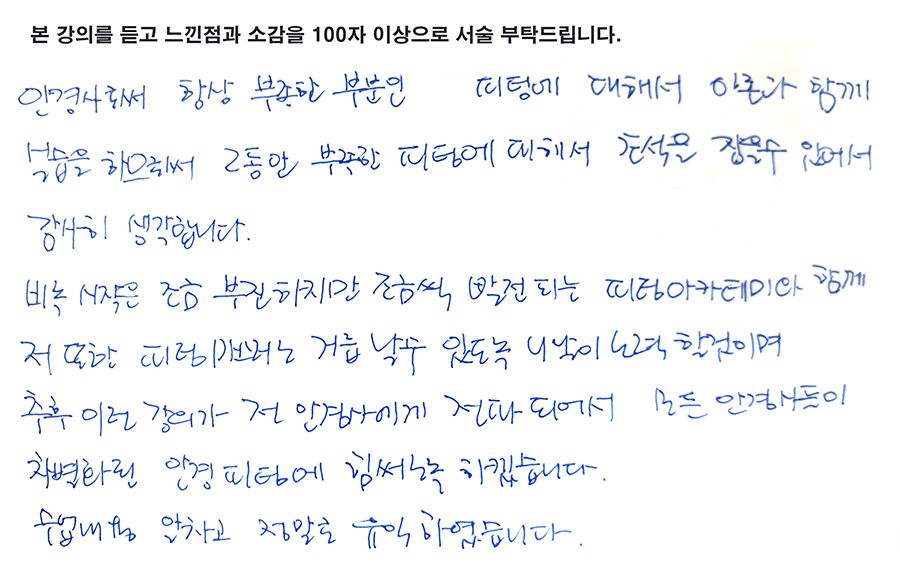 본 강의를 듣고 느낀점과 소감을 100자 이상으로 서술 부탁드립니다.
안경사로써 항상 부족한 부분인 피팅에 대해서 이론과 함께
실습을 하므로써 그동안 부족한 피팅에 대해서 초석을 잡을수 있어서
감사히 생각합니다.
비록 시작은 조금 부진하지만 조금씩 발전되는 피팅아카데미와 함께
저 또한 피팅 거듭 날수 있도록 노력 할것이며
추후 이런 강의가 전 안경사에게 전파 되어서 모든 안경사들이
차별화된 안경피팅에 힘써 하겠습니다.
수업내용 알차고 정말로 유익하였습니다.